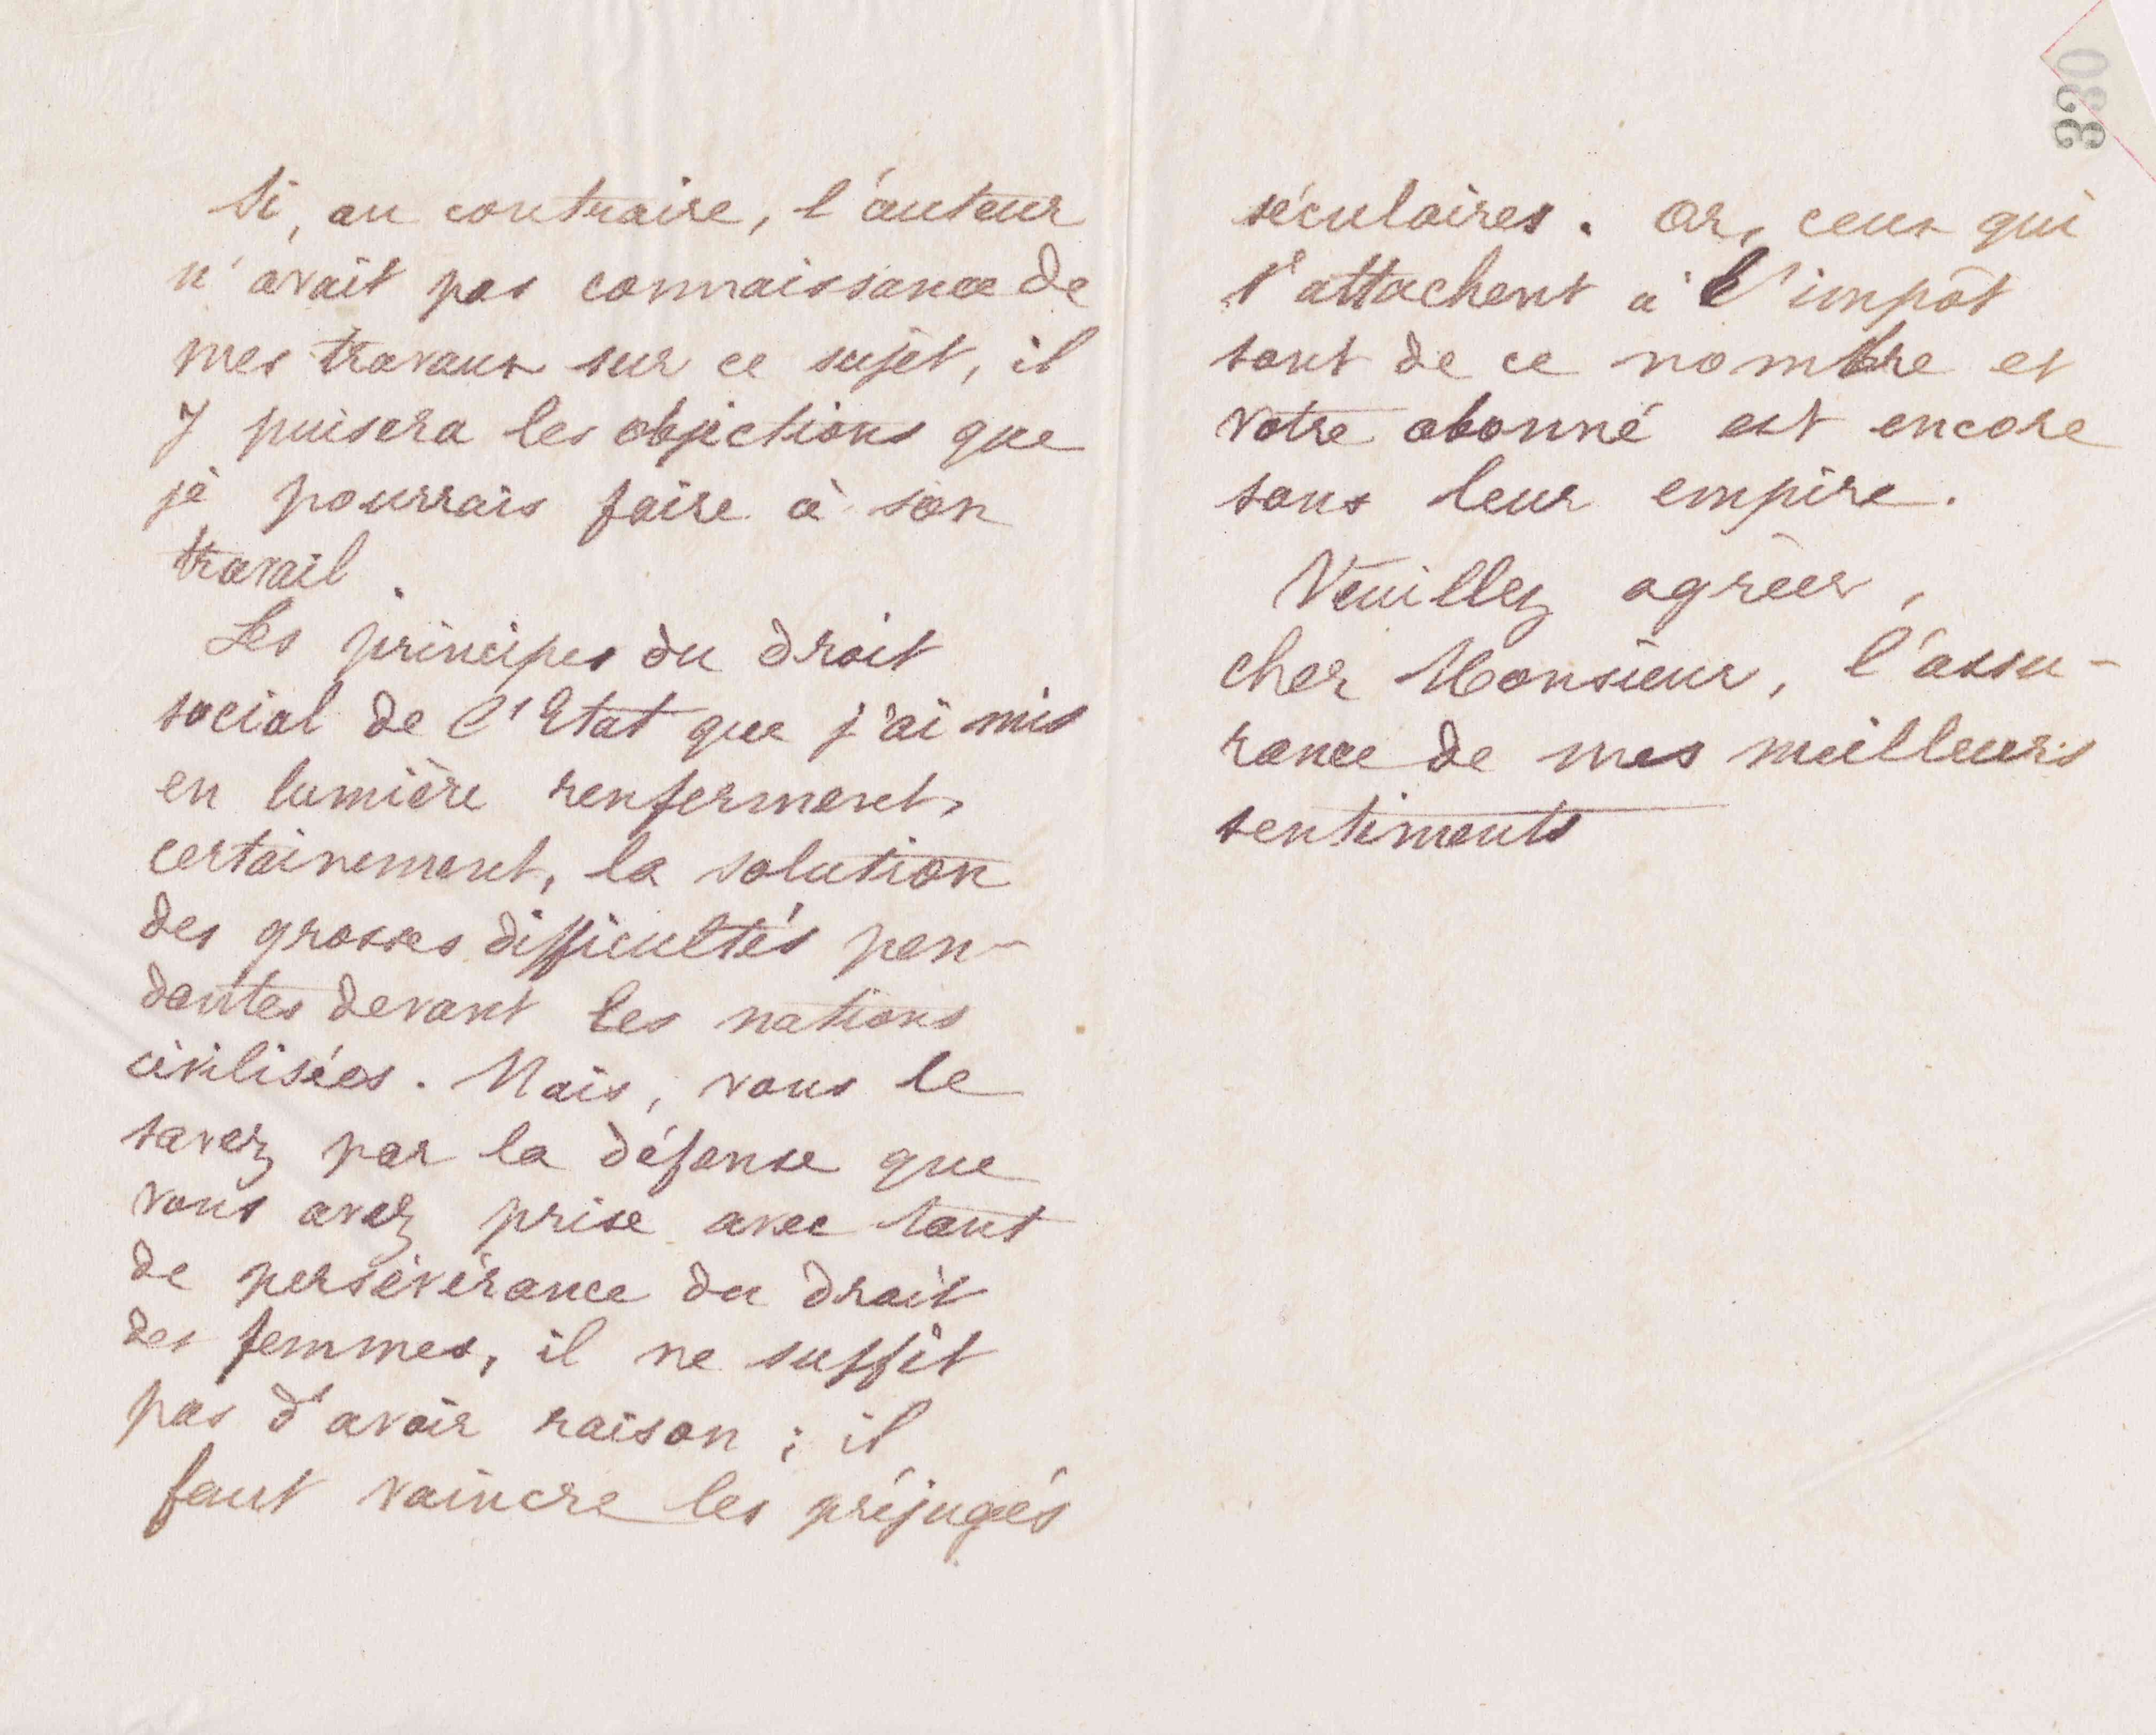 Si, au contraire, l'auteur
n'avait pas connaissance de
mes travaux sur ce sujet, il
y puisera les objections que
je pourrais faire à son
travail.
Les principes du droit
social de l'Etat que j'ai mis
en lumière renferment,
certainement, la solution
des grosses difficultés pen-
dantes devant les nations
civilisées. Mais, vous le
savez par la défense que
vous avez prise avec tant
de persévérance du droit
des femmes, il ne suffit
pas d'avoir raison ; il
faut vaincre les préjugés
séculaires. Or, ceux qui
s'attachent à l'impôt
sont de ce nombre et
votre abonné est encore
sous leur empire.
Veuillez agréer,
cher Monsieur, l'assu-
rance de mes meilleurs
sentiments
330